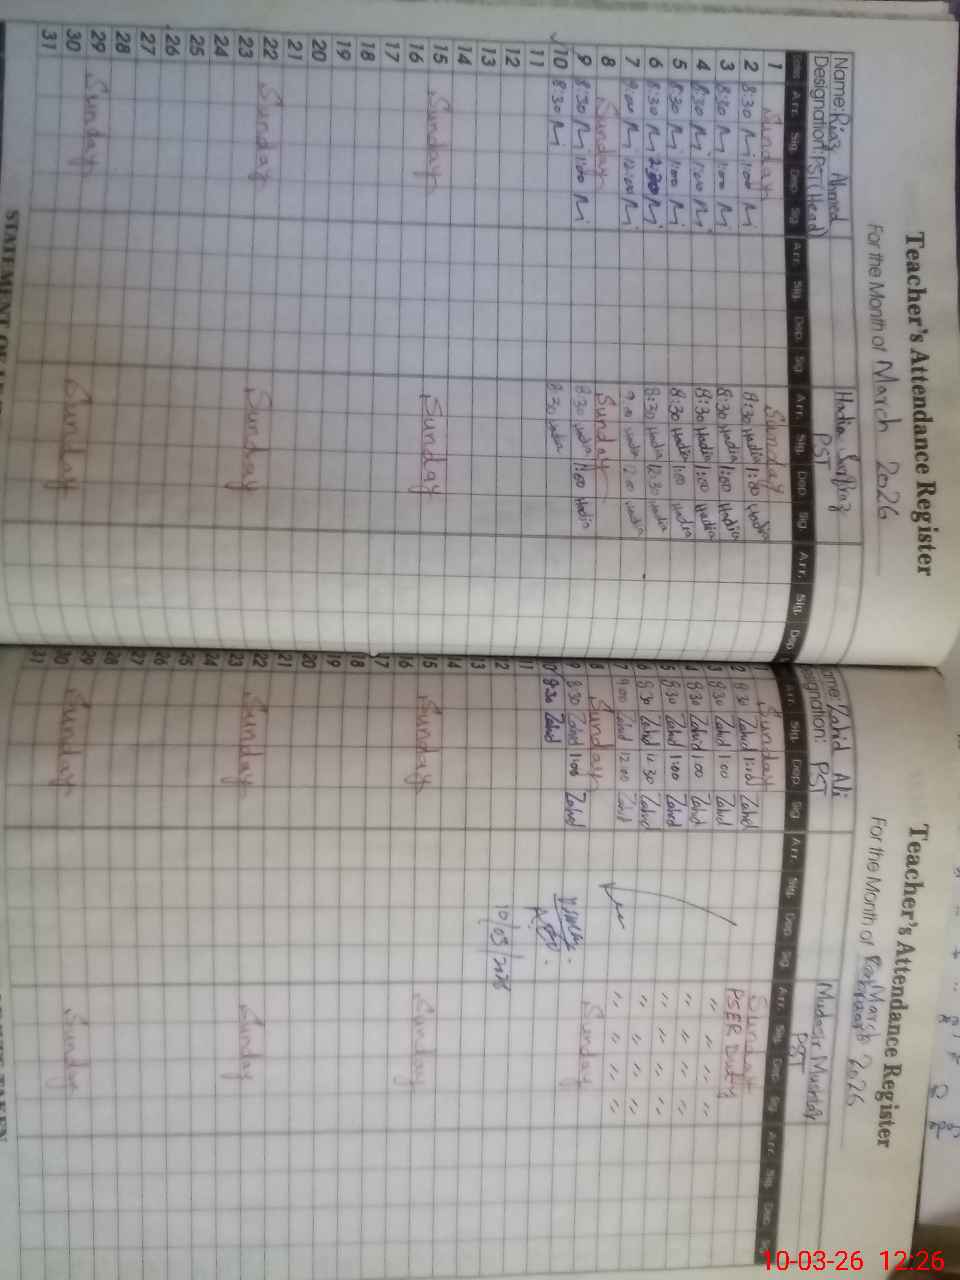 Teacher's Attendance Register
For the Month of March 2026
Name: Riaz Ahmed Hadia Sarfraz
Designation: PST (Head) PST
Date Arr. Sig. Dep. Sig. Arr. Sig. Dep. Sig. Arr. Sig. Dep. Sig. Arr. Sig. Dep.
1 Sunday Sunday
2 8:30 1:00 8:30 Hadia 1:00 Hadia
3 8:30 1:00 8:30 Hadia 1:00 Hadia
4 8:30 1:00 8:30 Hadia 1:00 Hadia
5 8:30 1:00 8:30 Hadia 1:00 Hadia
6 8:30 2:30 8:30 Hadia 12:30 Hadia
7 9:00 12:00 9:00 Hadia 12:00 Hadia
8 Sunday Sunday
9 8:30 1:00 8:30 Hadia 1:00 Hadia
10 8:30 8:30 Hadia
11
12
13
14
15 Sunday Sunday
16
17
18
19
20
21
22 Sunday Sunday
23
24
25
26
27
28
29 Sunday Sunday
30
31
STATEMENT OF
Teacher's Attendance Register
For the Month of March 2026
Name: Zahid Ali Mudasir Mushtaq
Designation: PST PST
Arr. Sig. Dep. Sig. Arr. Sig. Dep. Sig. Arr. Sig. Dep. Sig. Arr. Sig. Dep. Sig.
1 Sunday Sunday
2 8:30 Zahid 1:00 Zahid PSER Duty
3 8:30 Zahid 1:00 Zahid " " " "
4 8:30 Zahid 1:00 Zahid " " " "
5 8:30 Zahid 1:00 Zahid " " " "
6 8:30 Zahid 12:30 Zahid " " " "
7 9:00 Zahid 12:00 Zahid " " " "
8 Sunday Sunday
9 8:30 Zahid 1:00 Zahid
10 8:30 Zahid
11
12 10/03/2026
13
14
15 Sunday Sunday
16
17
18
19
20
21
22 Sunday Sunday
23
24
25
26
27
28
29 Sunday Sunday
30
31
TAKEN
10-03-26 12:26